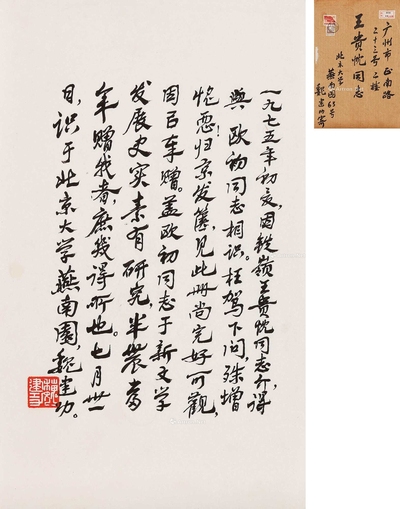 一九七五年初夏,因铁嶺王贵忱同志介得
與 欧初同志相识。枉驾下问,殊增
恧!归京发箧,见此册尚完好可观,
因以奉赠。盖欧初同志于新文学
发展史实素有研究,半农当
年赠我者,庶几得所也。七月卅一
日,识于北京大学燕南园,魏建功。
广州市 正南路
三十三号二楼
王贵忱同志
北京大学
燕南园65号
魏寄